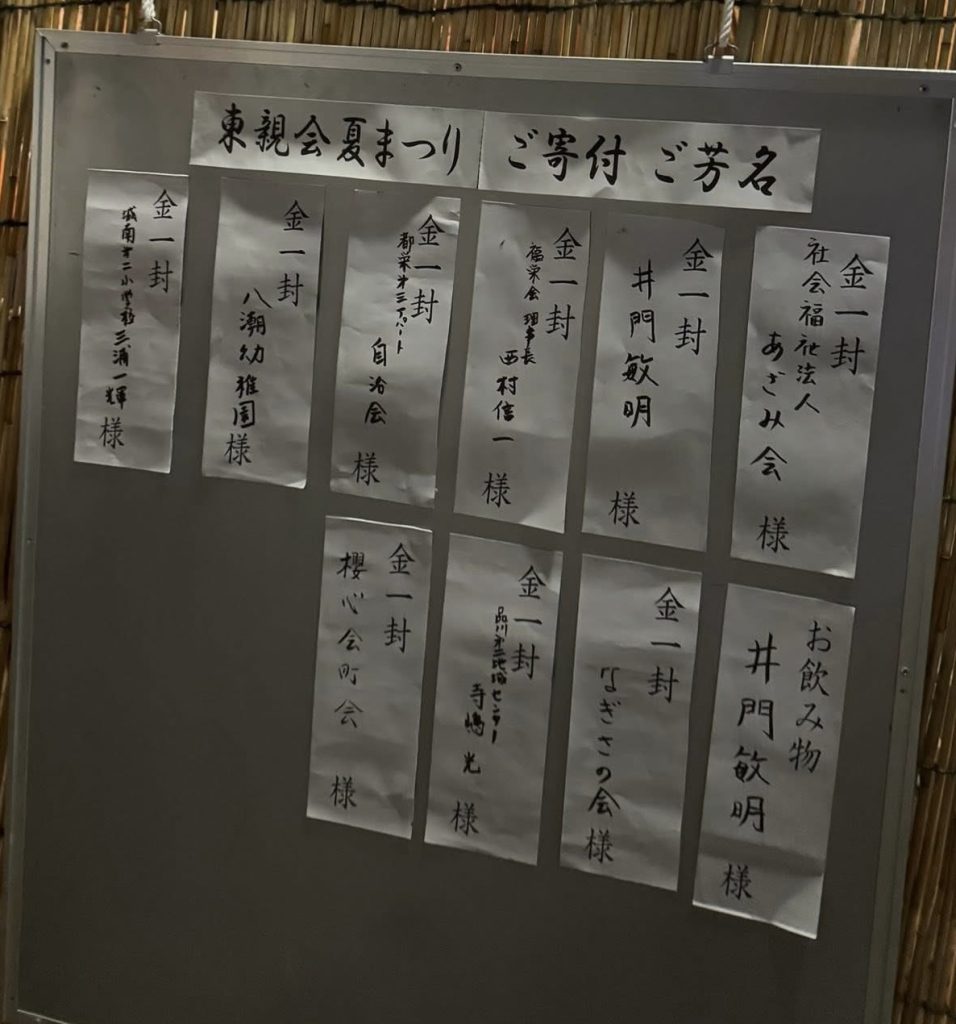 東親会夏まつり ご寄付 ご芳名
金一封
社会福祉法人
あざみ会 様
金一封
井門敏明 様
金一封
福栄会 理事長
西村信一 様
金一封
都営第三アパート
自治会 様
金一封
八潮幼稚園 様
金一封
城南第二小学校 三浦一輝 様
お飲み物
井門敏明 様
金一封
なぎさの会 様
金一封
品川第二地域センター
寺嶋 光 様
金一封
櫻心会町会 様